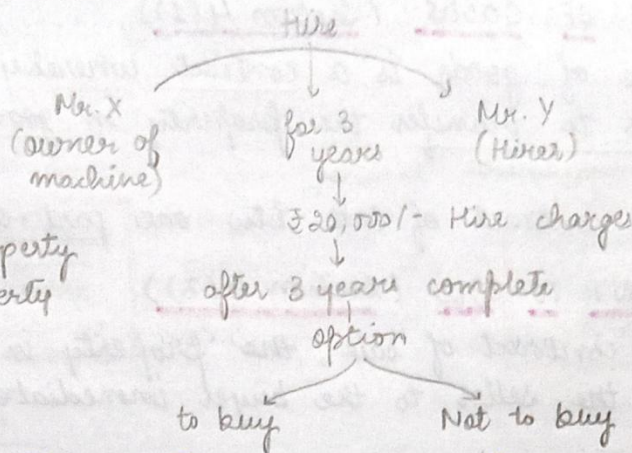 Hire
Mr. X
(owner of
machine)
for 3
years
Mr. Y
(Hirer)
₹20,000/- Hire charges
perty
erty
after 3 years complete
option
to buy
Not to buy